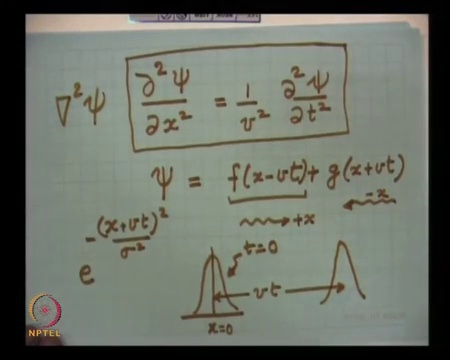 ∇²ψ ∂²ψ/∂x² = 1/v² ∂²ψ/∂t²
ψ = f(x-vt) + g(x+vt)
→ +x ← -x
e^(-(x+vt)²/σ²)
t=0
← vt →
x=0
NPTEL